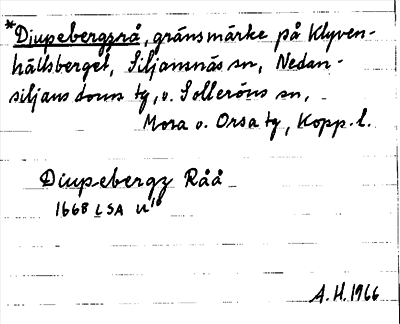 *Djupebergzrå, gränsmärke på Klyven-
hällsberget, Siljansnäs sn, Nedan-
siljans doms tg, o. Solleröns sn,
Mora o. Orsa tg, Kopp. l.
Diupebergz Råå
1668 LSA U¹⁰
A.H. 1966